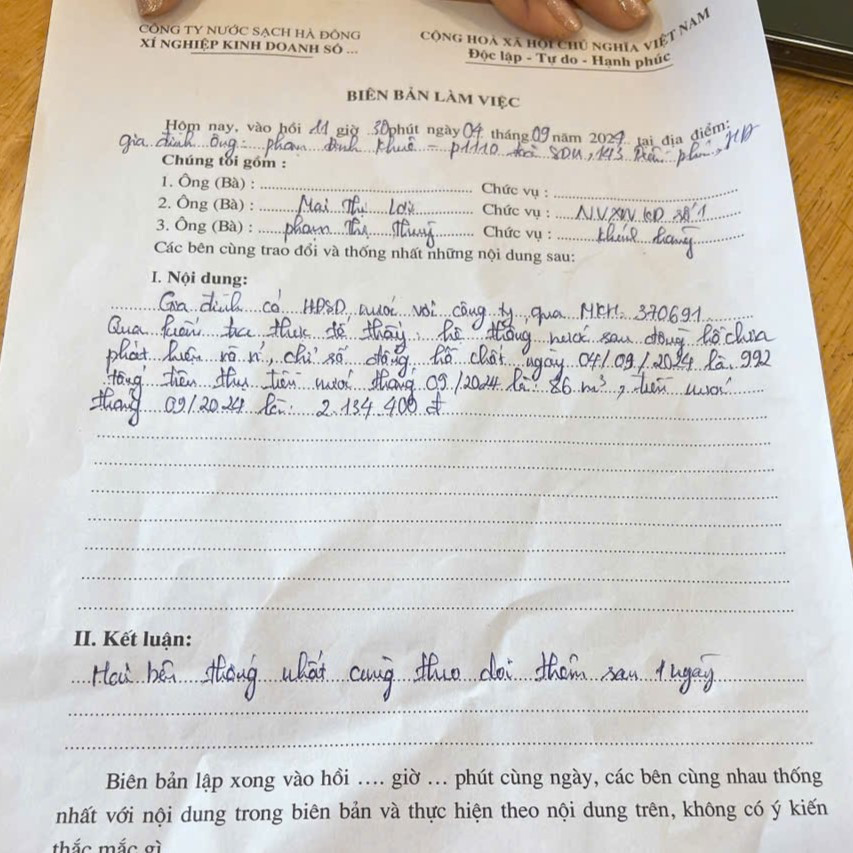 CÔNG TY NƯỚC SẠCH HÀ ĐÔNG
XÍ NGHIỆP KINH DOANH SỐ ...
CỘNG HOÀ XÃ HỘI CHỦ NGHĨA VIỆT NAM
Độc lập - Tự do - Hạnh phúc
BIÊN BẢN LÀM VIỆC
Hôm nay, vào hồi 11 giờ 30 phút ngày 04 tháng 09 năm 2024 tại địa điểm:
gia đình ông: phạm Đình Khuê - p1110 toà SDU, 143 Trần phú, HĐ
Chúng tôi gồm :
1. Ông (Bà) : Chức vụ :
2. Ông (Bà) : Mai Thị Chức vụ : N.V XN KD số 1
3. Ông (Bà) : phạm Thị Chức vụ : khách hàng
Các bên cùng trao đổi và thống nhất những nội dung sau:
I. Nội dung:
Gia đình có HĐSD nước với công ty, qua MKH: 370691
Qua kiểm tra thực tế thấy: hệ thống nước sau đồng hồ chưa
phát hiện rò rỉ, chỉ số đồng hồ chốt ngày 04/09/2024 là 992
tổng tiêu thụ tiền nước tháng 09/2024 là: 86 m³, tiền nước
tháng 09/2024 là: 2.134.400 đ
II. Kết luận:
Hai bên thống nhất cùng theo dõi thêm sau 1 ngày
Biên bản lập xong vào hồi .... giờ ... phút cùng ngày, các bên cùng nhau thống
nhất với nội dung trong biên bản và thực hiện theo nội dung trên, không có ý kiến
thắc mắc gì